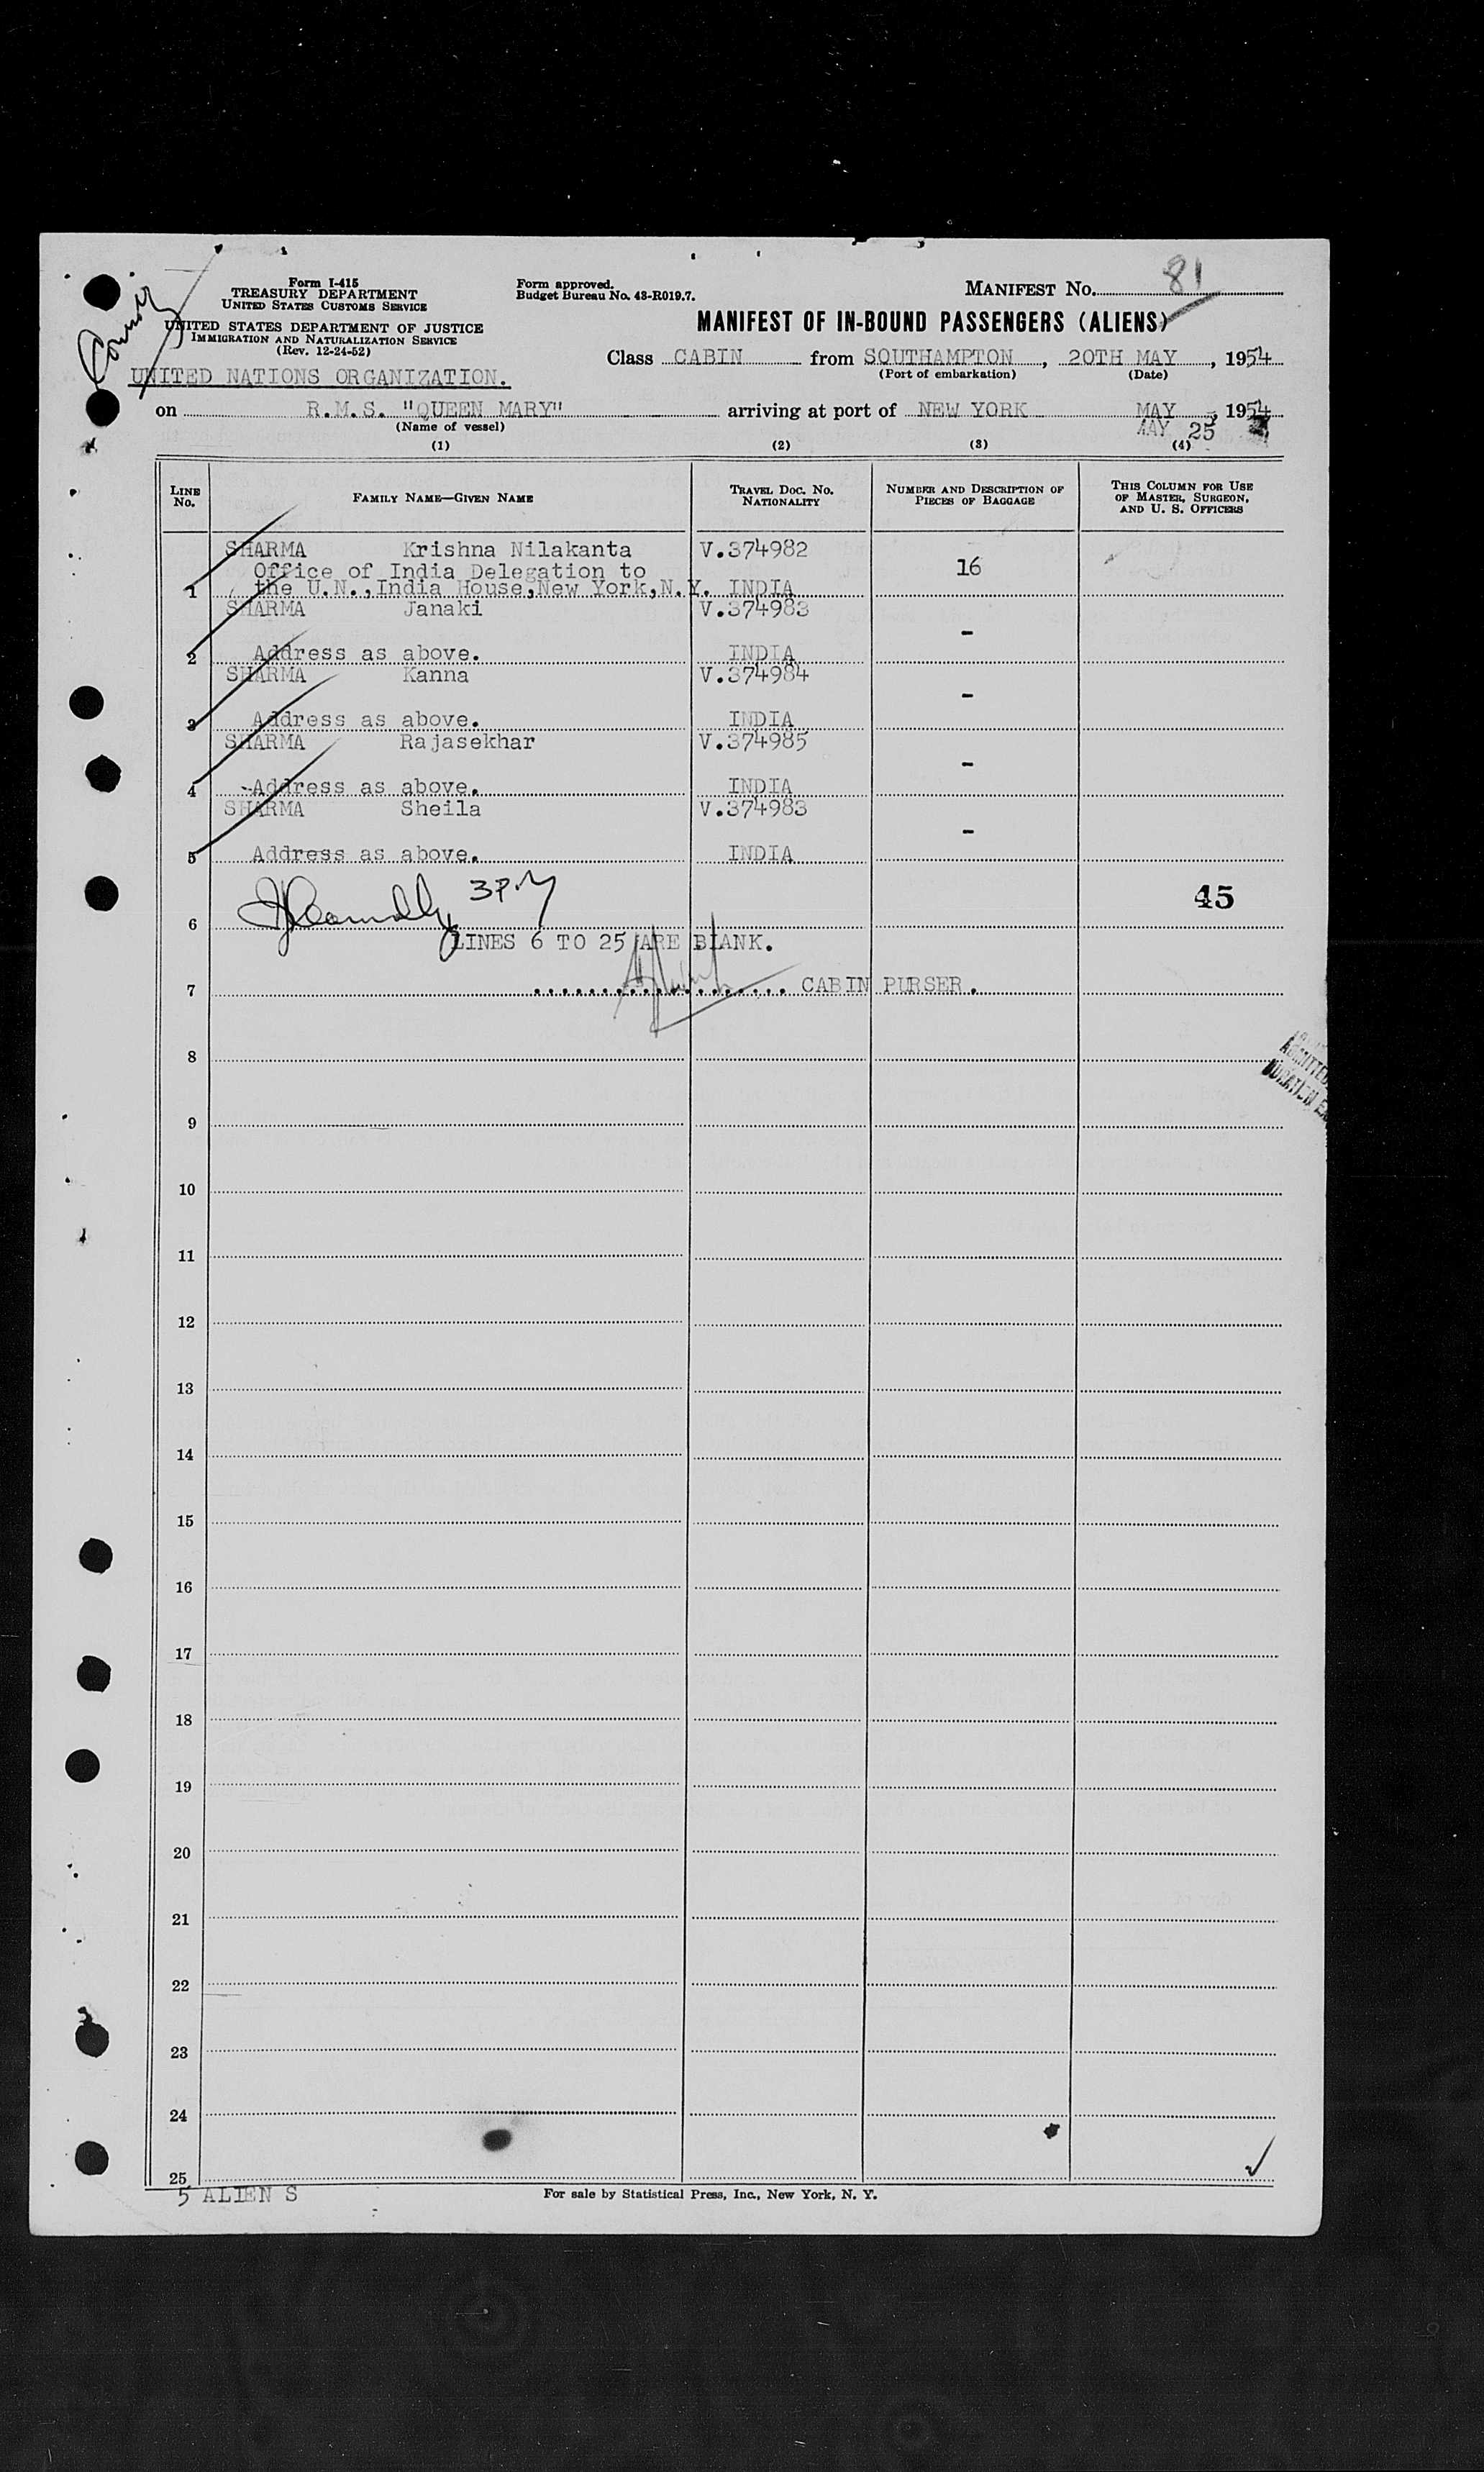 Form I-415
TREASURY DEPARTMENT
UNITED STATES CUSTOMS SERVICE
UNITED STATES DEPARTMENT OF JUSTICE
IMMIGRATION AND NATURALIZATION SERVICE
(Rev. 12-24-52)
Form approved.
Budget Bureau No. 43-R019.7.
MANIFEST NO. 81
MANIFEST OF IN-BOUND PASSENGERS (ALIENS)
Class CABIN from SOUTHAMPTON, 20TH MAY, 1954
(Port of embarkation) (Date)
UNITED NATIONS ORGANIZATION.
on R.M.S. "QUEEN MARY" arriving at port of NEW YORK MAY, 1954
(Name of vessel) MAY 25
(1) (2) (3) (4)
LINE NO. FAMILY NAME—GIVEN NAME TRAVEL DOC. NO. NATIONALITY NUMBER AND DESCRIPTION OF PIECES OF BAGGAGE THIS COLUMN FOR USE OF MASTER, SURGEON, AND U. S. OFFICERS
SHARMA Krishna Nilakanta V.374982
Office of India Delegation to 16
1 the U.N.,India House,New York,N.Y. INDIA
SHARMA Janaki V.374983
-
2 Address as above. INDIA
SHARMA Kanna V.374984
-
3 Address as above. INDIA
SHARMA Rajasekhar V.374985
-
4 -Address as above. INDIA
SHARMA Sheila V.374983
-
5 Address as above. INDIA
3 P.M 45
6
LINES 6 TO 25 ARE BLANK.
7 .................... CABIN PURSER.
8
ADMITTED
DURATION
9
10
11
12
13
14
15
16
17
18
19
20
21
22
23
24
25
5 ALIEN S For sale by Statistical Press, Inc., New York, N. Y.